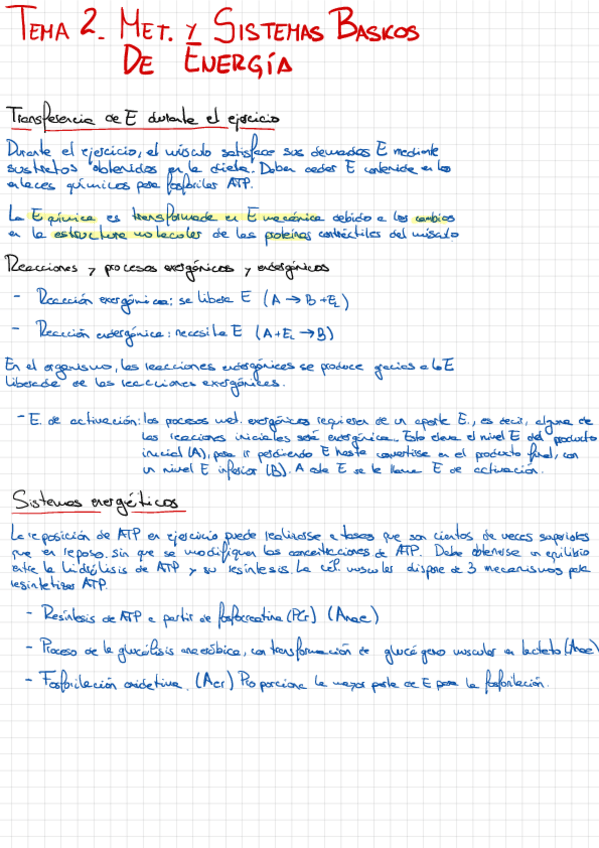 TEMA 2. MET. Y SISTEMAS BASICOS
DE ENERGÍA
Transferencia de E durante el ejercicio
Durante el ejercicio, el músculo satisface sus demandas E mediante
sustratos obtenidos en la dieta. Deben ceder E contenida en los
enlaces químicos para fosforilar ATP.
La E química es transformada en E mecánica debido a los cambios
en la estructura molecular de las proteínas contráctiles del músculo
Reacciones y procesos exergónicos y endergónicos
- Reacción exergónica: se libera E (A → B + EL)
- Reacción endergónica: necesita E (A + EL → B)
En el organismo, las reacciones endergónicas se produce gracias a la E
liberada de las reacciones exergónicas.
- E. de activación: los procesos met. exergónicos requieren de un aporte E., es decir, alguna de
las reacciones iniciales será endergónica. Esto eleva el nivel E del producto
inicial (A), para ir perdiendo E hasta convertirse en el producto final, con
un nivel E inferior (B). A esta E se le llama E de activación.
Sistemas energéticos
La reposición de ATP en ejercicio puede realizarse a tasas que son cientos de veces superiores
que en reposo. sin que se modifiquen las concentraciones de ATP. Debe obtenerse un equilibrio
entre la hidrólisis de ATP y su resíntesis. La cél. muscular dispone de 3 mecanismos para
resintetizar ATP.
- Resíntesis de ATP a partir de fosfocreatina (PCr) (Anae)
- Proceso de la glucólisis anaeróbica, con transformación de glucógeno muscular en lactato (Anae)
- Fosforilación oxidativa. (Aer) Proporciona la mayor parte de E para la fosforilación.